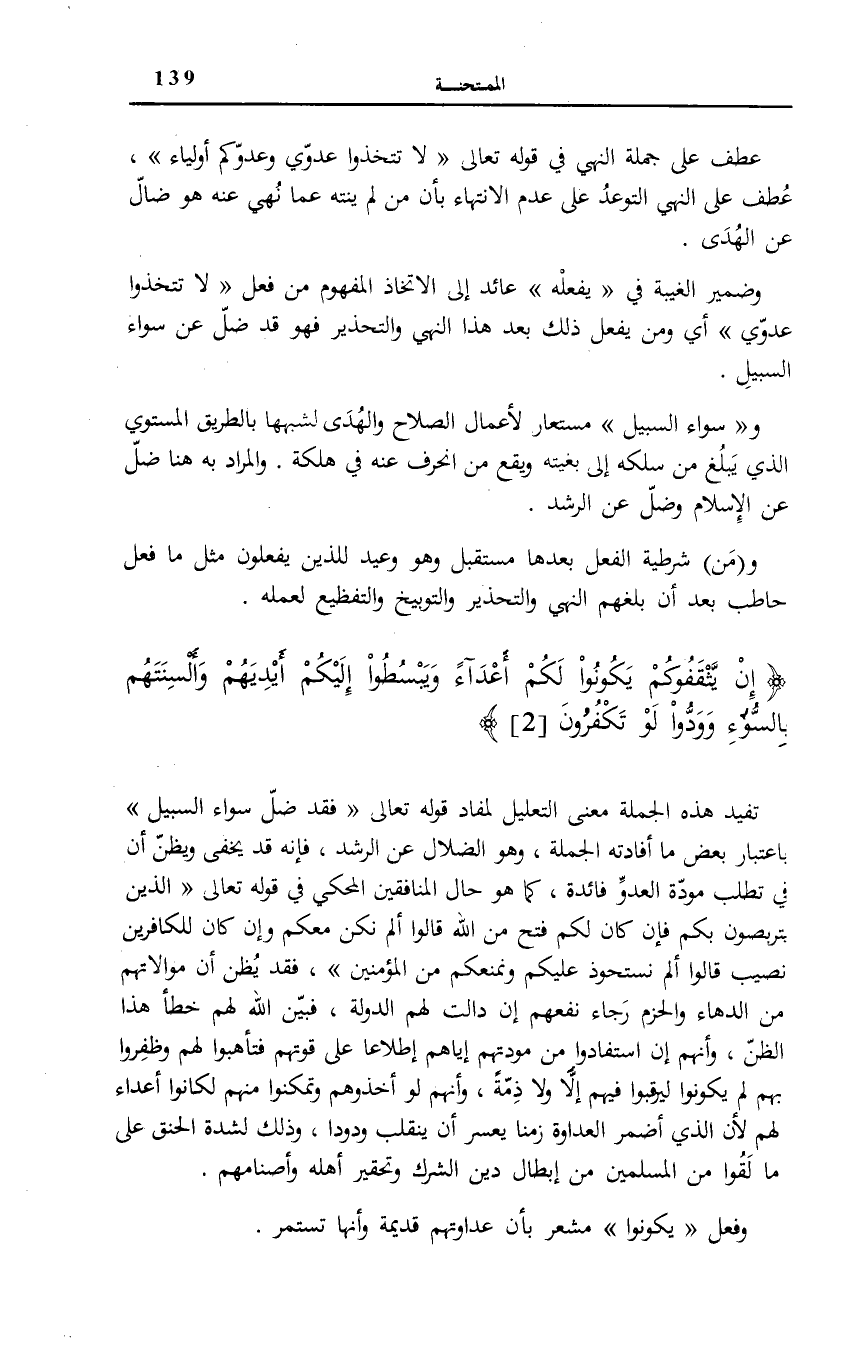 الممتحنة 139
عطف على جملة النهي في قوله تعالى « لا تتخذوا عدوّي وعدوّكم أولياء » ،
عُطف على النهي التوعدُ على عدم الانتهاء بأن من لم ينته عما نُهي عنه هو ضالّ
عن الهُدَى .
وضمير الغيبة في « يفعلْه » عائد إلى الاتخاذ المفهوم من فعل « لا تتخذوا
عدوّي » أي ومن يفعل ذلك بعد هذا النهي والتحذير فهو قد ضلّ عن سواء
السبيلِ .
و« سواء السبيل » مستعار لأعمال الصلاح والهُدَى لشبهها بالطريق المستوي
الذي يَبلُغ من سلكه إلى بغيته ويقع من انحرف عنه في هلكة . والمراد به هنا ضلّ
عن الإِسلام وضلّ عن الرشد .
و(مَن) شرطية الفعل بعدها مستقبل وهو وعيد للذين يفعلون مثل ما فعل
حاطب بعد أن بلغهم النهي والتحذير والتوبيخ والتفظيع لعمله .
﴿ إِنْ يَّثْقَفُوكُمْ يَكُونُواْ لَكُمْ أَعْدَآءً وَيَبْسُطُواْ إِلَيْكُمْ أَيْدِيَهُمْ وَأَلْسِنَتَهُم
بِالسُّوٓءِ وَوَدُّواْ لَوْ تَكْفُرُونَ [2] ﴾
تفيد هذه الجملة معنى التعليل لمفاد قوله تعالى « فقد ضلّ سواء السبيل »
باعتبار بعض ما أفادته الجملة ، وهو الضلال عن الرشد ، فإنه قد يخفى ويظنّ أن
في تطلب مودّة العدوِّ فائدة ، كما هو حال المنافقين المحكي في قوله تعالى « الذين
يتربصون بكم فإن كان لكم فتح من الله قالوا ألم نكن معكم وإن كان للكافرين
نصيب قالوا ألم نستحوذ عليكم ونمنعكم من المؤمنين » ، فقد يُظن أن موالاتهم
من الدهاء والحزم رَجاء نفعهم إن دالت لهم الدولة ، فبيّن الله لهم خطأ هذا
الظنّ ، وأنهم إن استفادوا من مودتهم إياهم إطلاعا على قوتهم فتأهبوا لهم وظفِروا
بهم لم يكونوا ليرقبوا فيهم إلًّا ولا ذِمّةً ، وأنهم لو أخذوهم وتمكنوا منهم لكانوا أعداء
لهم لأن الذي أضمر العداوة زمنا يعسر أن ينقلب ودودا ، وذلك لشدة الحنق على
ما لَقُوا من المسلمين من إبطال دين الشرك وتحقير أهله وأصنامهم .
وفعل « يكونوا » مشعر بأن عداوتهم قديمة وأنها تستمر .